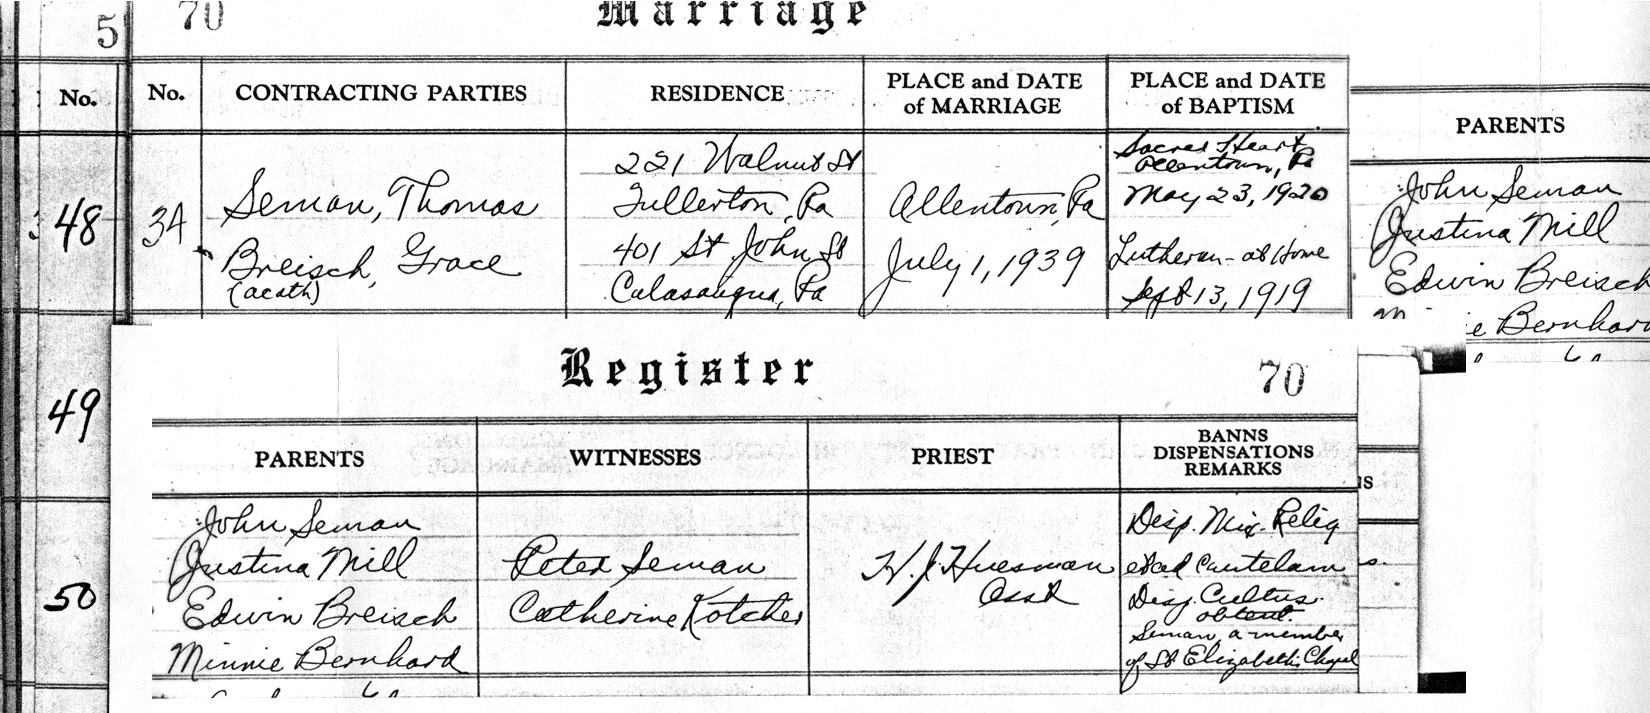 5 70 Marriage
No. No. CONTRACTING PARTIES RESIDENCE PLACE and DATE of MARRIAGE PLACE and DATE of BAPTISM
PARENTS
48 34
Seman, Thomas
Breisch, Grace
(acath)
221 Walnut St
Fullerton, Pa
401 St John St
Catasauqua, Pa
Allentown, Pa
July 1, 1939
Sacred Heart
Allentown, Pa
May 23, 1920
Lutheran - at Home
Sept 13, 1919
John Seman
Justina Mill
Edwin Breisch
Bernhard
49
50
Register 70
PARENTS WITNESSES PRIEST BANNS DISPENSATIONS REMARKS
John Seman
Justina Mill
Edwin Breisch
Minnie Bernhard
Peter Seman
Catherine Kotcher
H. J. Huesman
Asst
Disp. Mix. Relig
et ad Cautelam
Disp. Cultus
obtent.
Seman, a member
of St Elizabeth Chapel